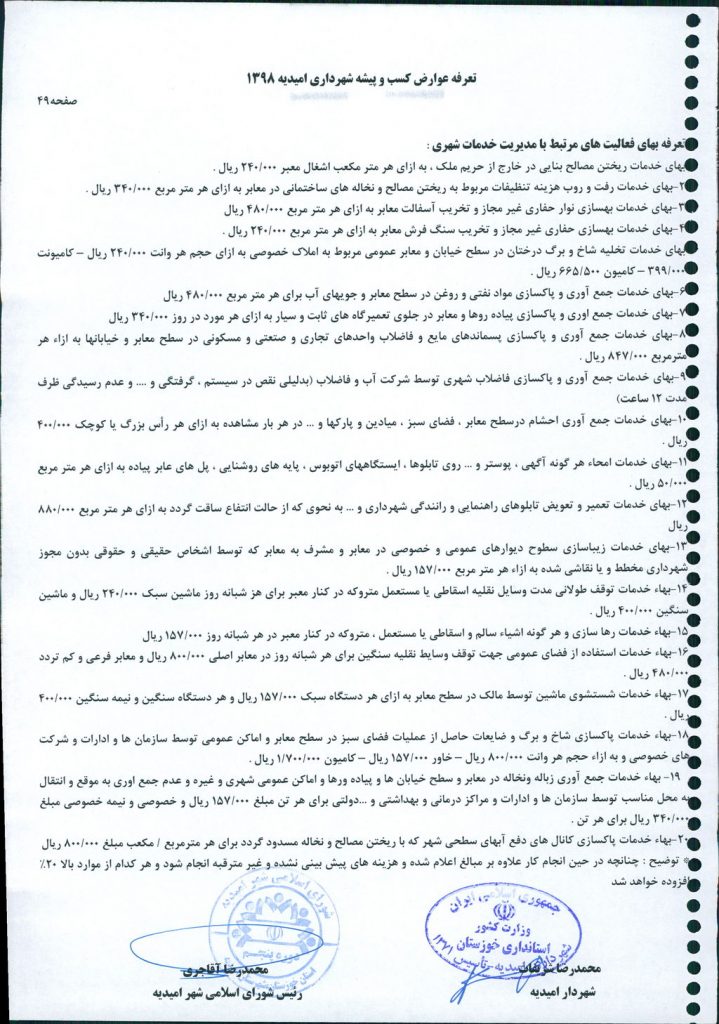 تعرفه عوارض کسب و پیشه شهرداری امیدیه ۱۳۹۸
صفحه۴۹
تعرفه بهای فعالیت های مرتبط با مدیریت خدمات شهری :
بهای خدمات ریختن مصالح بنایی در خارج از حریم ملک ، به ازای هر متر مکعب اشغال معبر ۲۴۰/۰۰۰ ریال .
۲-بهای خدمات رفت و روب هزینه تنظیفات مربوط به ریختن مصالح و نخاله های ساختمانی در معابر به ازای هر متر مربع ۳۴۰/۰۰۰ ریال .
۳-بهای خدمات بهسازی نوار حفاری غیر مجاز و تخریب آسفالت معابر به ازای هر متر مربع ۴۸۰/۰۰۰ ریال
۴-بهای خدمات بهسازی حفاری غیر مجاز و تخریب سنگ فرش معابر به ازای هر متر مربع ۲۴۰/۰۰۰ ریال .
بهای خدمات تخلیه شاخ و برگ درختان در سطح خیابان و معابر عمومی مربوط به املاک خصوصی به ازای حجم هر وانت ۲۴۰/۰۰۰ ریال – کامیونت
۳۹۹/۰۰۰ – کامیون ۶۶۵/۵۰۰ ریال .
۶-بهای خدمات جمع آوری و پاکسازی مواد نفتی و روغن در سطح معابر و جویهای آب برای هر متر مربع ۴۸۰/۰۰۰ ریال
۷-بهای خدمات جمع اوری و پاکسازی پیاده روها و معابر در جلوی تعمیرگاه های ثابت و سیار به ازای هر مورد در روز ۳۴۰/۰۰۰ ریال
۸-بهای خدمات جمع آوری و پاکسازی پسماندهای مایع و فاضلاب واحدهای تجاری و صنعتی و مسکونی در سطح معابر و خیابانها به ازاء هر
مترمربع ۸۴۷/۰۰۰ ریال .
۹-بهای خدمات جمع آوری و پاکسازی فاضلاب شهری توسط شرکت آب و فاضلاب (بدلیلی نقص در سیستم ، گرفتگی و .... و عدم رسیدگی ظرف
مدت ۱۲ ساعت)
۱۰-بهای خدمات جمع آوری احشام درسطح معابر ، فضای سبز ، میادین و پارکها و ... در هر بار مشاهده به ازای هر رأس بزرگ یا کوچک ۴۰۰/۰۰۰
ریال .
۱۱-بهای خدمات امحاء هر گونه آگهی ، پوستر و ... روی تابلوها ، ایستگاههای اتوبوس ، پایه های روشنایی ، پل های عابر پیاده به ازای هر متر مربع
۵۰/۰۰۰ ریال .
۱۲-بهای خدمات تعمیر و تعویض تابلوهای راهنمایی و رانندگی شهرداری و ... به نحوی که از حالت انتفاع ساقت گردد به ازای هر متر مربع ۸۸۰/۰۰۰
ریال
۱۳-بهای خدمات زیباسازی سطوح دیوارهای عمومی و خصوصی در معابر و مشرف به معابر که توسط اشخاص حقیقی و حقوقی بدون مجوز
شهرداری مخطط و یا نقاشی شده به ازاء هر متر مربع ۱۵۷/۰۰۰ ریال .
۱۴-بهاء خدمات توقف طولانی مدت وسایل نقلیه اسقاطی یا مستعمل متروکه در کنار معبر برای هز شبانه روز ماشین سبک ۲۴۰/۰۰۰ ریال و ماشین
سنگین ۴۰۰/۰۰۰ ریال .
۱۵-بهاء خدمات رها سازی و هر گونه اشیاء سالم و اسقاطی یا مستعمل ، متروکه در کنار معبر در هر شبانه روز ۱۵۷/۰۰۰ ریال
۱۶-بهاء خدمات استفاده از فضای عمومی جهت توقف وسایط نقلیه سنگین برای هر شبانه روز در معابر اصلی ۸۰۰/۰۰۰ ریال و معابر فرعی و کم تردد
۴۸۰/۰۰۰ ریال .
۱۷-بهاء خدمات شستشوی ماشین توسط مالک در سطح معابر به ازای هر دستگاه سبک ۱۵۷/۰۰۰ ریال و هر دستگاه سنگین و نیمه سنگین ۴۰۰/۰۰۰
ریال .
۱۸-بهاء خدمات پاکسازی شاخ و برگ و ضایعات حاصل از عملیات فضای سبز در سطح معابر و اماکن عمومی توسط سازمان ها و ادارات و شرکت
های خصوصی و به ازاء حجم هر وانت ۸۰۰/۰۰۰ ریال – خاور ۱۵۷/۰۰۰ ریال – کامیون ۱/۷۰۰/۰۰۰ ریال .
۱۹- بهاء خدمات جمع آوری زباله ونخاله در معابر و سطح خیابان ها و پیاده ورها و اماکن عمومی شهری و غیره و عدم جمع اوری به موقع و انتقال
به محل مناسب توسط سازمان ها و ادارات و مراکز درمانی و بهداشتی و ...دولتی برای هر تن مبلغ ۱۵۷/۰۰۰ ریال و خصوصی و نیمه خصوصی مبلغ
۳۴۰/۰۰۰ ریال برای هر تن .
۲۰-بهاء خدمات پاکسازی کانال های دفع آبهای سطحی شهر که با ریختن مصالح و نخاله مسدود گردد برای هر مترمربع / مکعب مبلغ ۸۰۰/۰۰۰ ریال
* توضیح : چنانچه در حین انجام کار علاوه بر مبالغ اعلام شده و هزینه های پیش بینی نشده و غیر مترقبه انجام شود و هر کدام از موارد بالا ۲۰٪
افزوده خواهد شد
جمهوری اسلامی ایران
وزارت کشور
استانداری خوزستان
شهرداری امیدیه-تاسیس ۱۳۶۱
شورای اسلامی شهر امیدیه
دوره پنجم
استان خوزستان
محمدرضا
شهردار امیدیه
محمدرضا آقاجری
رئیس شورای اسلامی شهر امیدیه